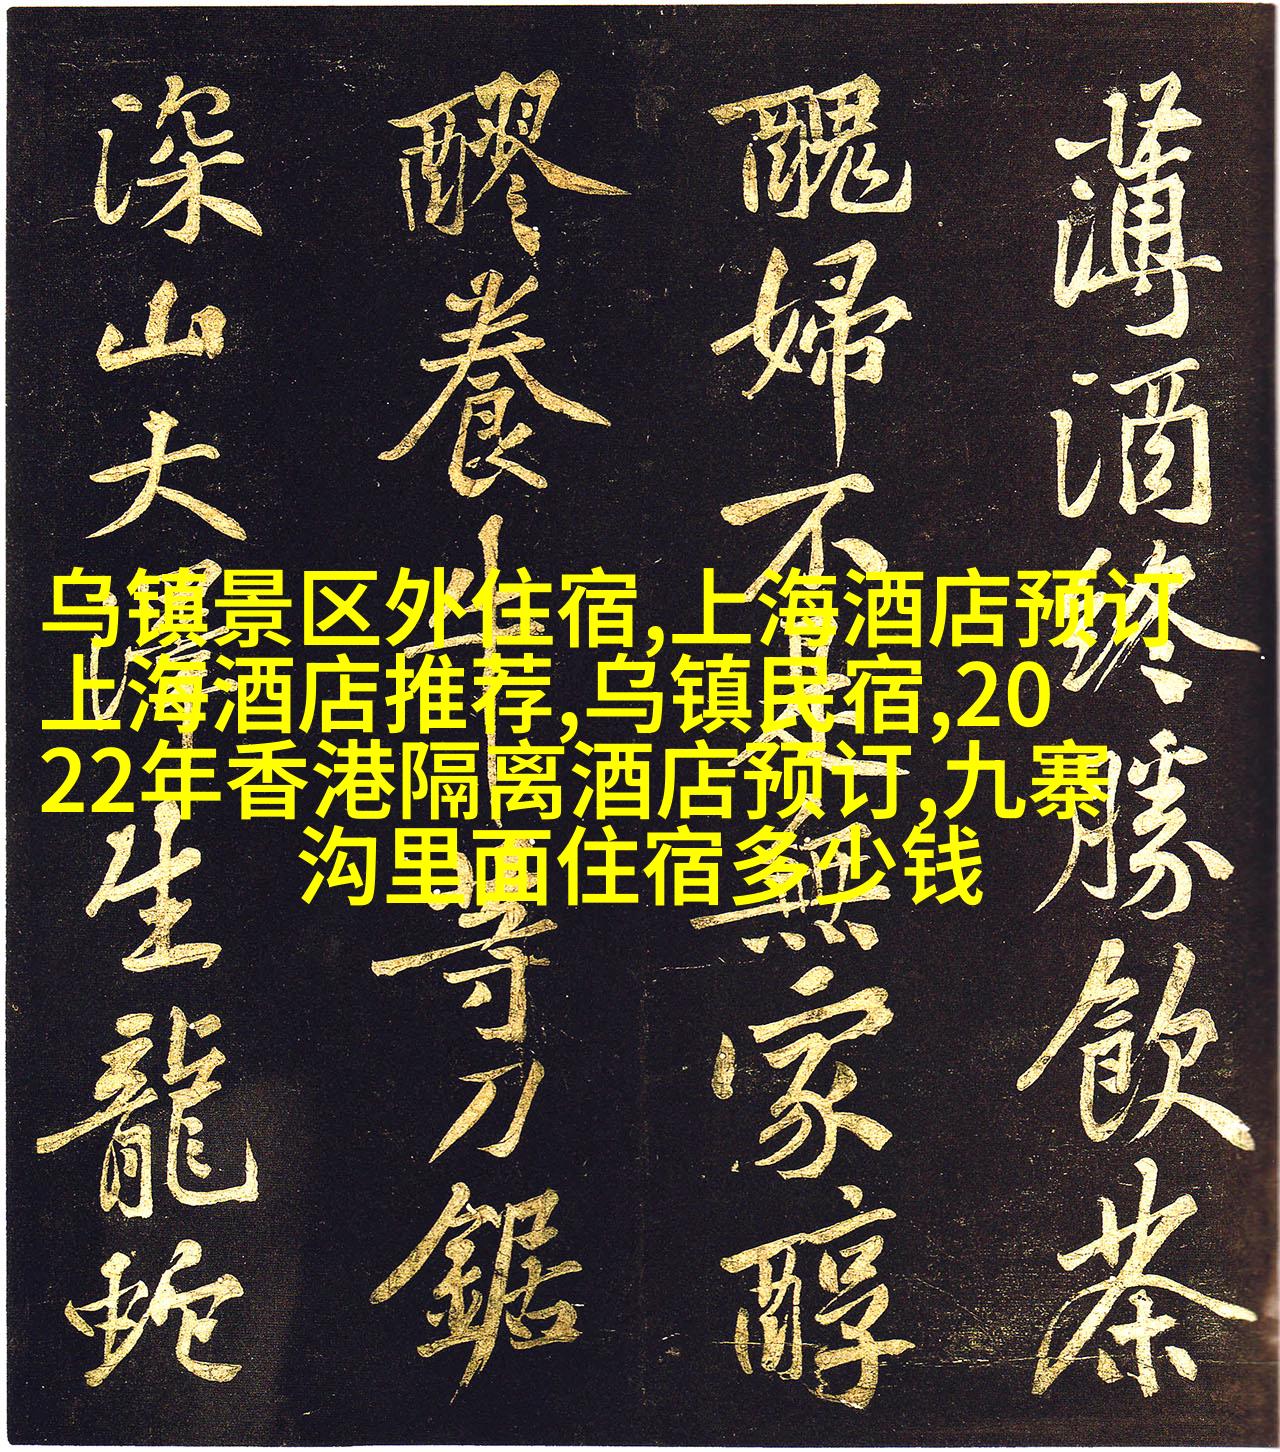 薄酒終勝飲茶
醜婦不是無家醇
醪養牛等刀鋸
深山大澤生龍蛇
乌镇景区外住宿,上海酒店预订
上海酒店推荐,乌镇民宿,20
22年香港隔离酒店预订,九寨
沟里面住宿多少钱